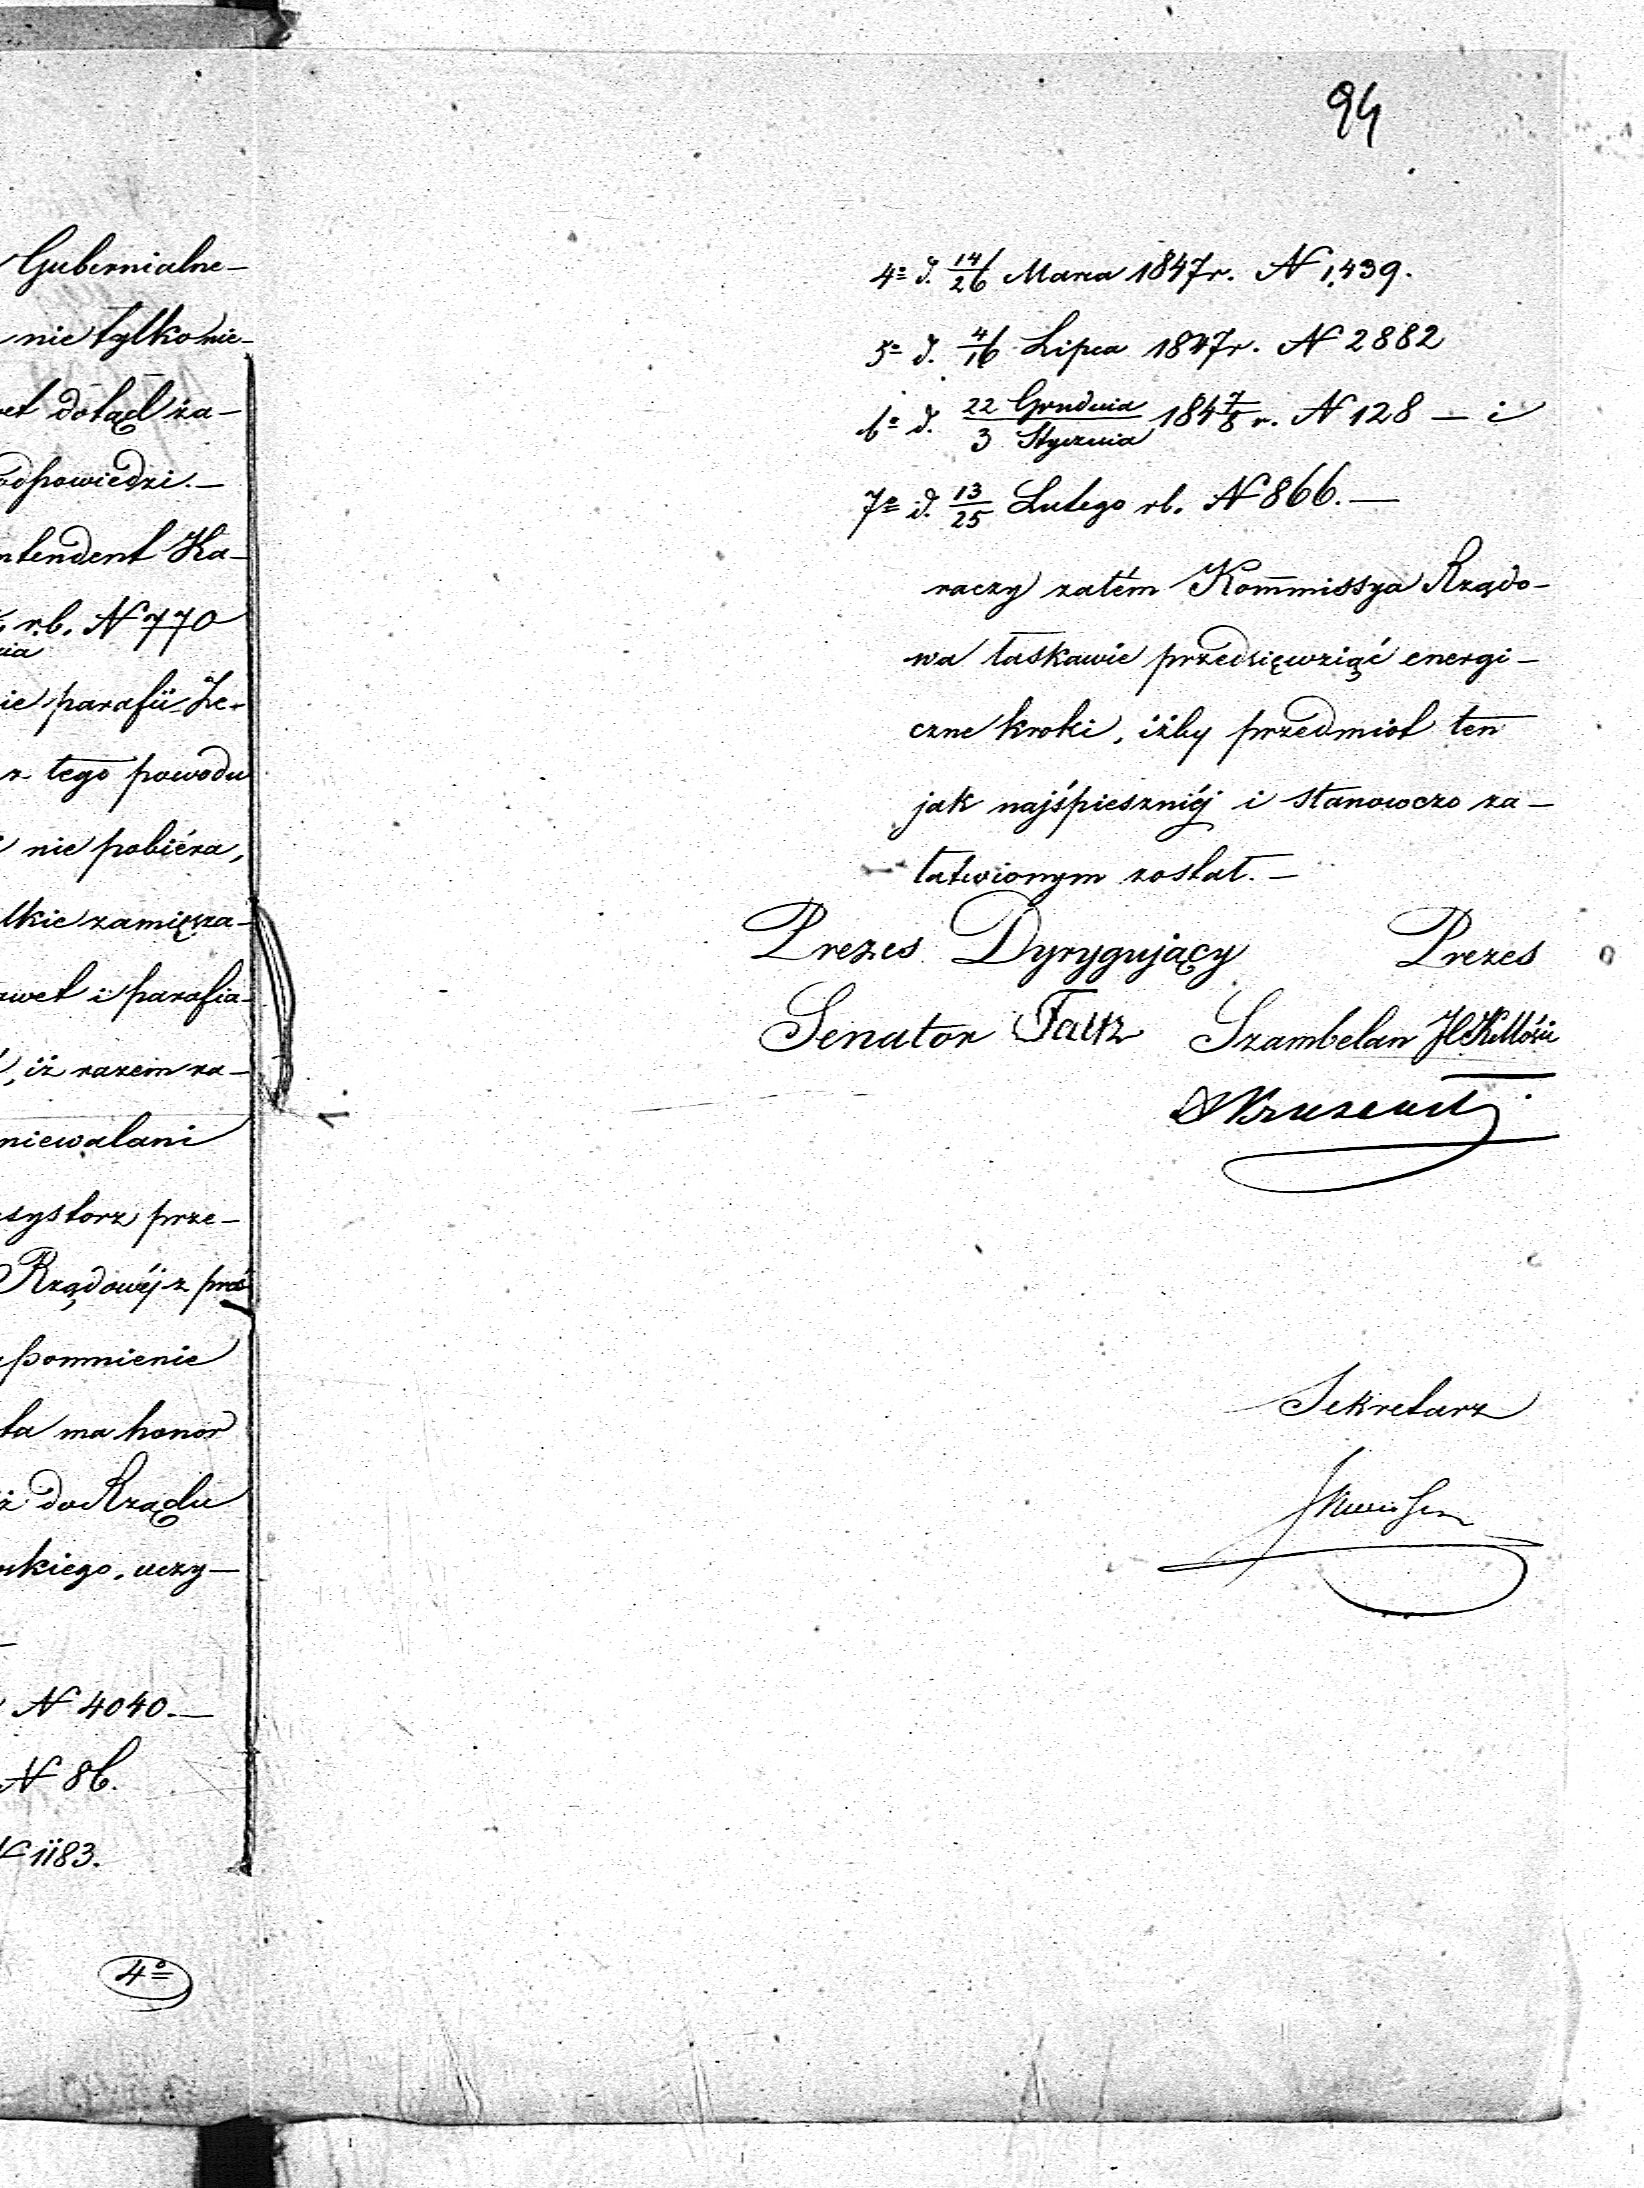 Gubernialne-
nie tylko nie-
dotąd ża-
odpowiedzi.—
Ka-
rb. N 770
parafii Że-
z tego powodu
nie pobiéra,
i parafia-
iż razem za-
niewalani
prze-
Rządowéj z
ma honor
do Rządu
uczy-
N 4040.—
N 86.
1183.
4º
94
4º d. 14/26 Marca 1847r. N 1,439.
5º d. 4/16 Lipca 1847r. N 2882
6º d. 22 Grudnia/3 Stycznia 1847/8 r. N 128 — i
7º d. 13/25 Lutego rb. N 866.—
raczy zatém Kommissya Rządo-
wa łaskawie przedsięwziąć energi-
czne kroki, iżby przedmiot ten
jak najśpieszniéj i stanowczo za-
łatwionym został.—
Prezes Dyrygujący Prezes
Senator Szambelan
Sekretarz